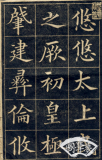 悠悠太上
之厥初皇極
肇建彝倫攸